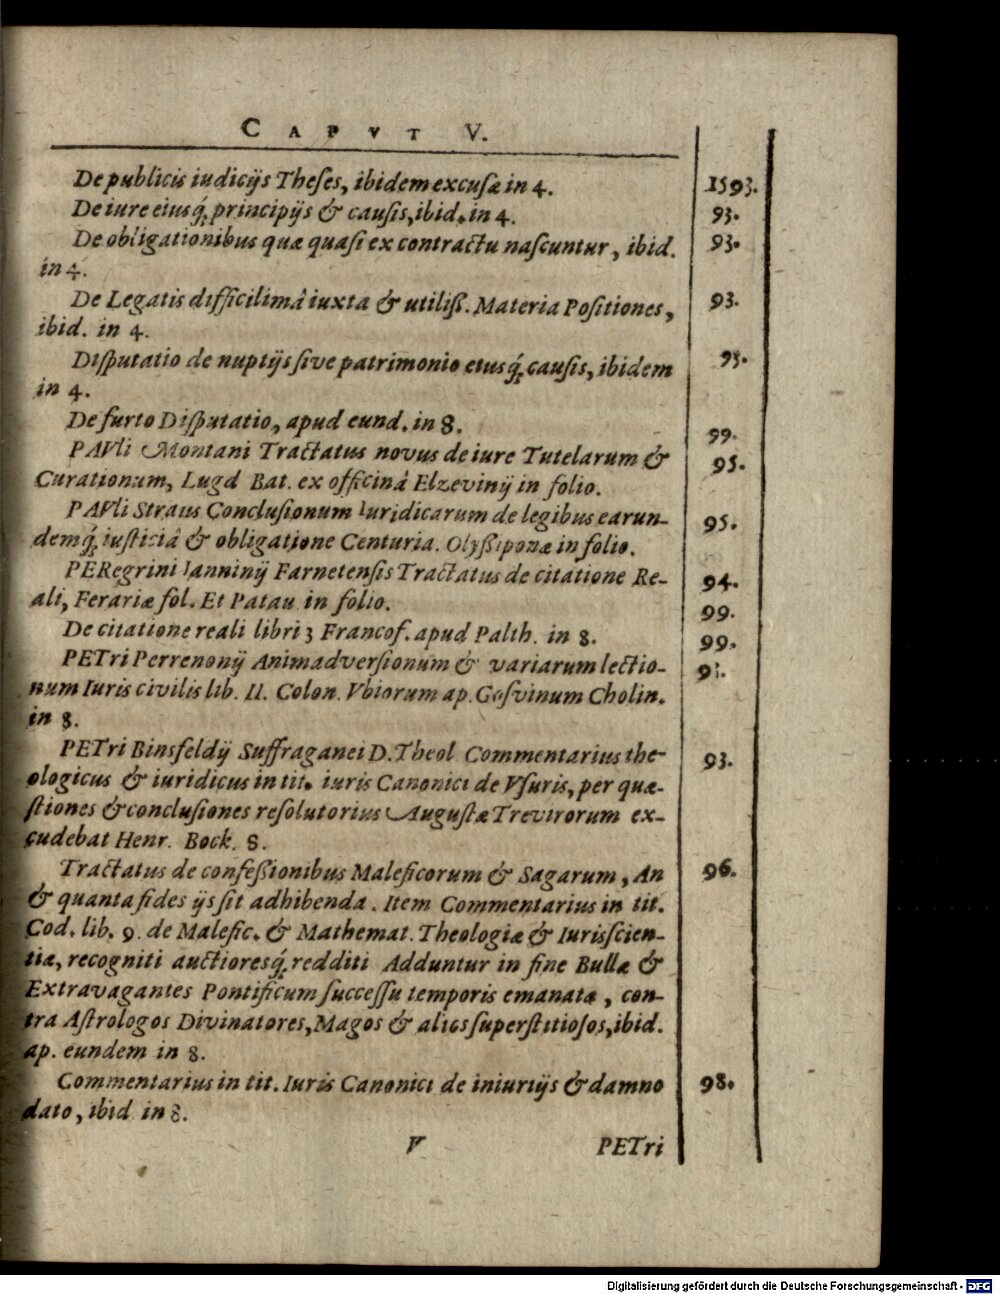 CAPVT V.
De publicis iudicijs Theſes, ibidem excuſæ in 4. 1593.
De iure eiusq́ principijs & cauſis, ibid. in 4. 93.
De obligationibus quæ quaſi ex contractu naſcuntur, ibid. 93.
in 4.
De Legatis difficilimâ iuxta & utiliß. Materia Poſitiones, 93.
ibid. in 4.
Diſputatio de nuptijs ſive patrimonio eiusq́ cauſis, ibidem 93.
in 4.
De furto Diſputatio, apud eund. in 8. 99.
PAVli Montani Tractatus novus de iure Tutelarum & 95.
Curationum, Lugd Bat. ex officinâ Elzevinij in folio.
PAVli Straus Concluſionum Iuridicarum de legibus earun- 95.
demq́ iuſticiâ & obligatione Centuria. Olyßiponæ in folio.
PERegrini Ianninij Farnetenſis Tractatus de citatione Re- 94.
ali, Ferariæ fol. Et Patau in folio. 99.
De citatione reali libri 3 Francof. apud Palth. in 8. 99.
PETri Perrenonij Animadverſionum & variarum lectio- 93.
num Iuris civilis lib. II. Colon. Vbiorum ap. Goſvinum Cholin.
in 8.
PETri Binsfeldij Suffraganei D. Theol Commentarius the- 93.
ologicus & iuridicus in tit. iuris Canonici de Vſuris, per quæ-
ſtiones & concluſiones reſolutorius Auguſtæ Trevirorum ex-
cudebat Henr. Bock. 8.
Tractatus de confeßionibus Maleficorum & Sagarum, An 96.
& quanta fides ijs ſit adhibenda. Item Commentarius in tit.
Cod. lib. 9. de Malefic. & Mathemat. Theologiæ & Iurisſcien-
tiæ, recogniti auctioresq́ redditi Adduntur in fine Bullæ &
Extravagantes Pontificum ſucceſſu temporis emanatæ, con-
tra Aſtrologos Divinatores, Magos & alios ſuperſtitioſos, ibid.
ap. eundem in 8.
Commentarius in tit. Iuris Canonici de iniurijs & damno 98.
dato, ibid in 8.
V PETri
Digitalisierung gefördert durch die Deutsche Forschungsgemeinschaft - DFG